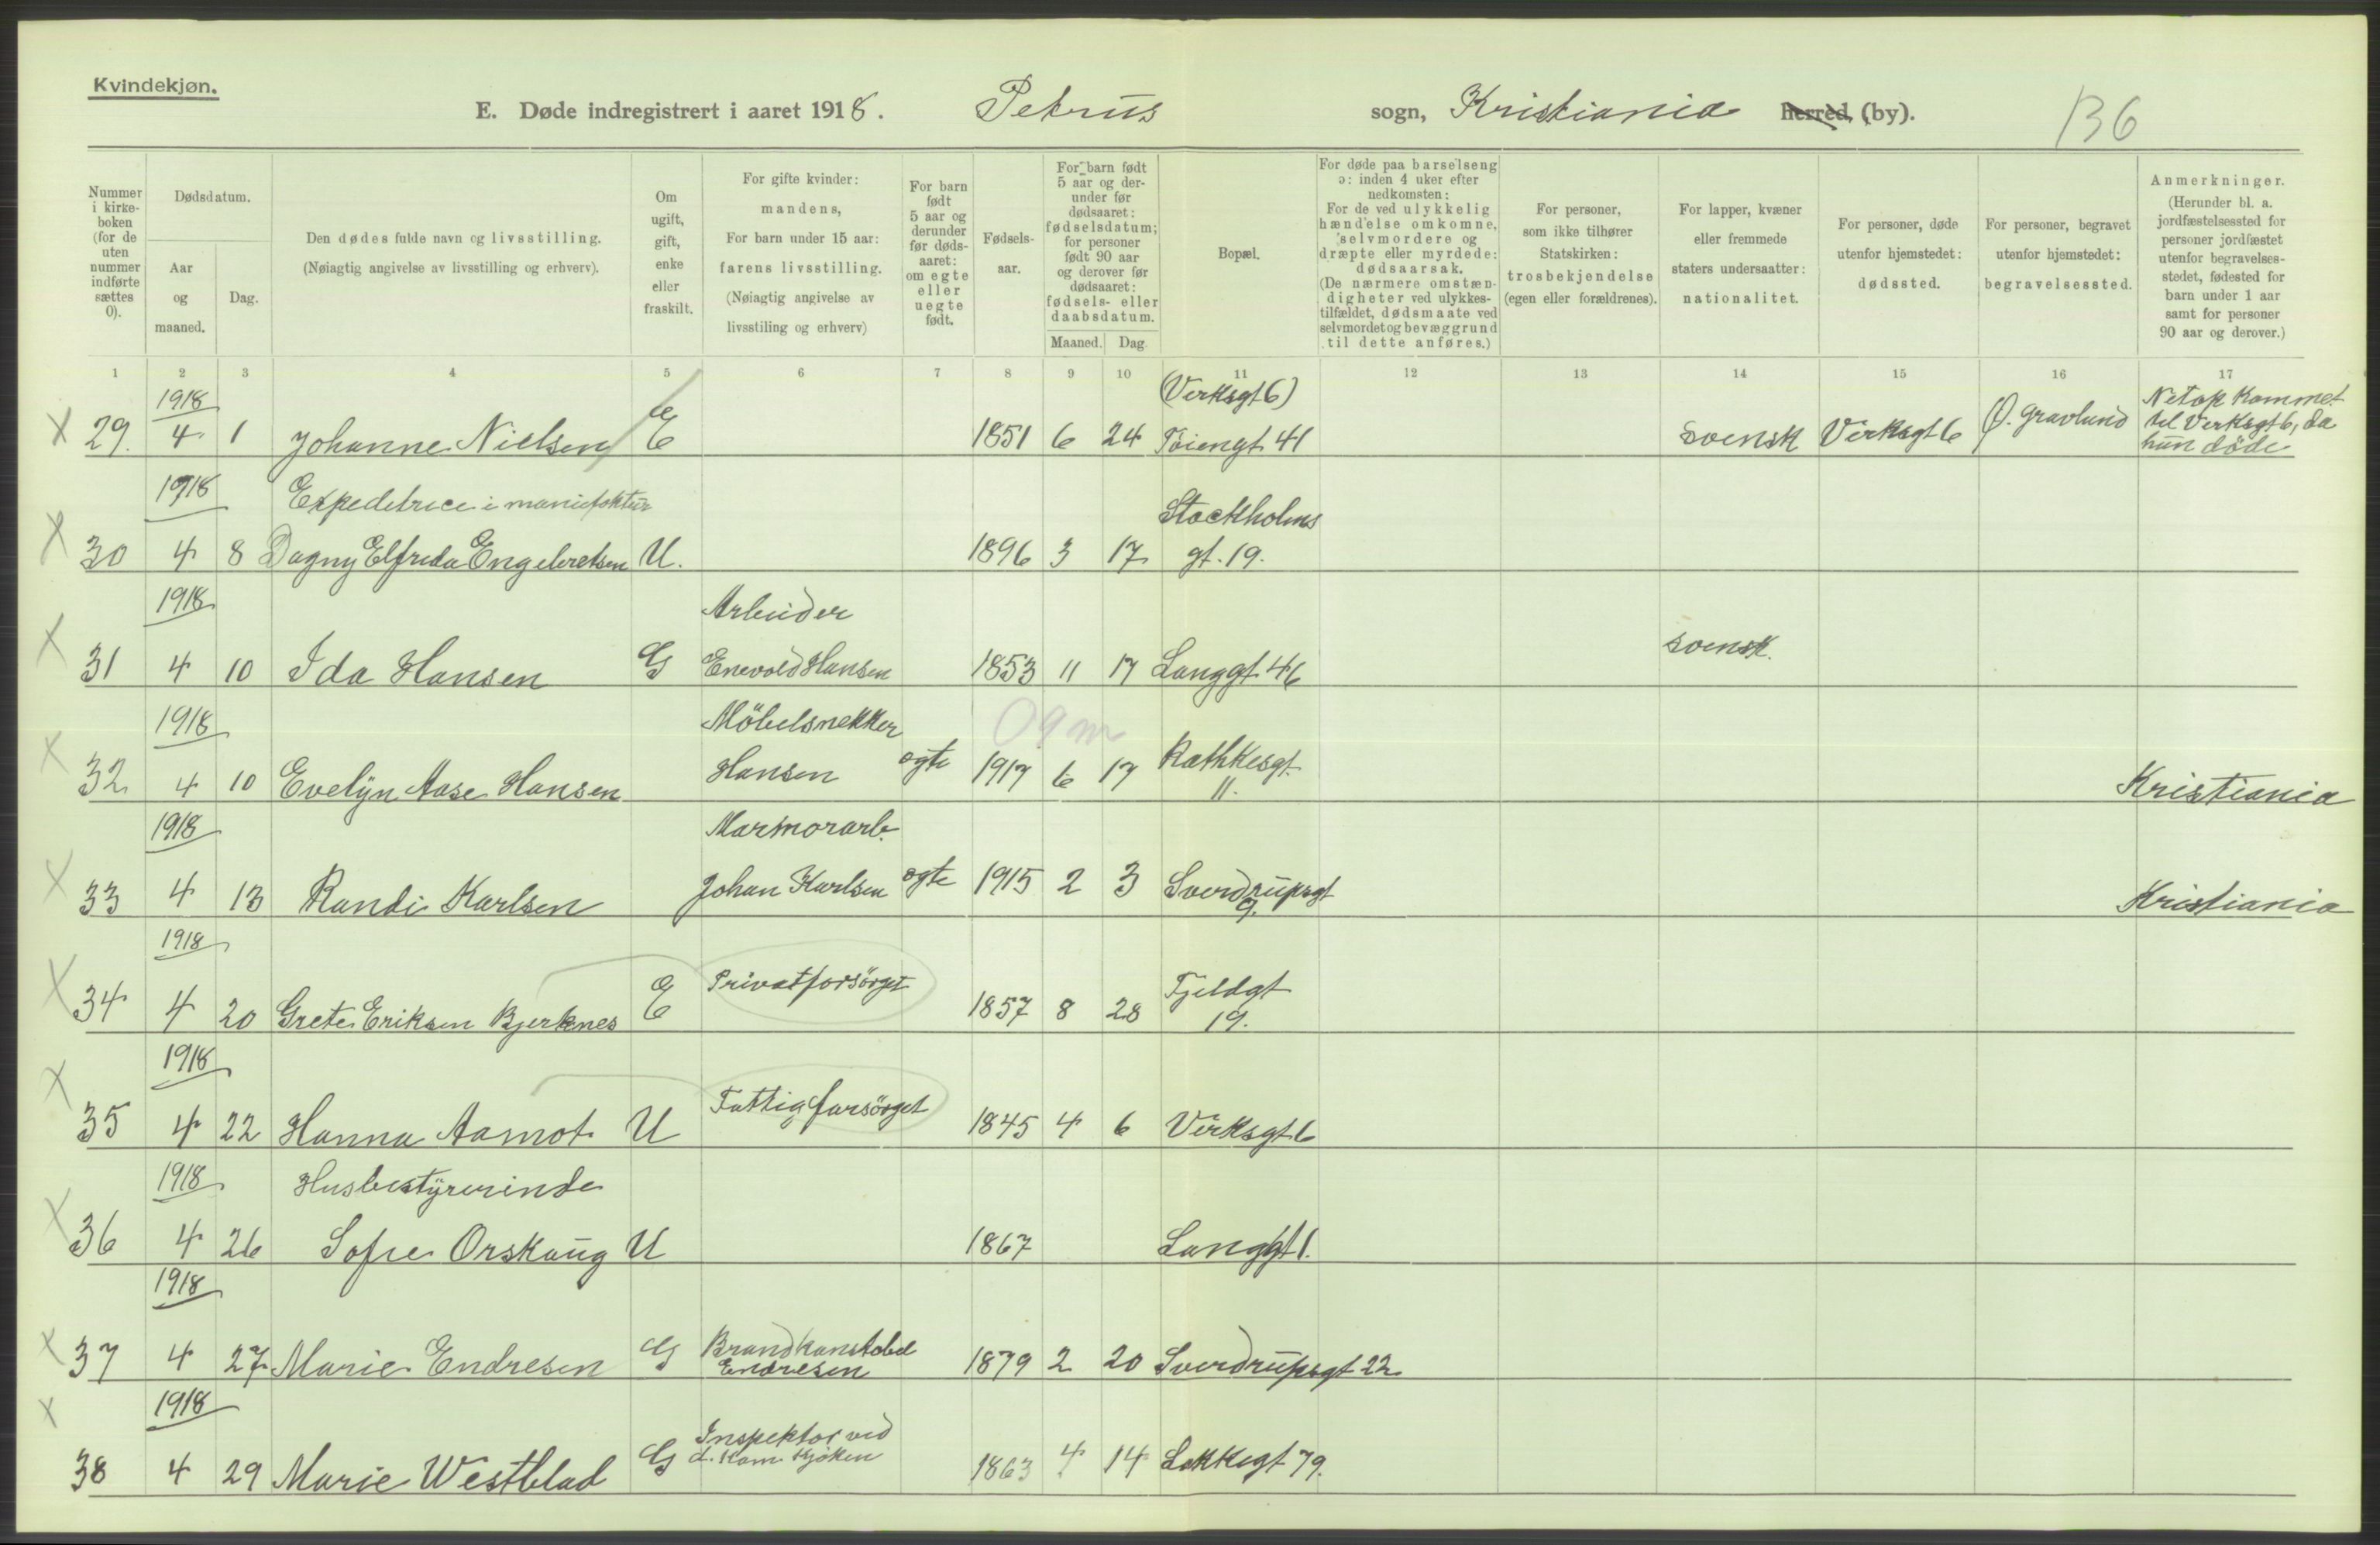 Kvindekjøn.
E. Døde indregistrert i aaret 1918. Petrus sogn, Kristiania herred, (by). 136
Nummer i kirke- boken (for de uten nummer indførte sættes 0).
Dødsdatum.
Aar og maaned.
Dag.
Den dødes fulde navn og livsstilling.
(Nøiagtig angivelse av livsstilling og erhverv).
Om ugift, gift, enke eller fraskilt.
For gifte kvinder: mandens,
For barn under 15 aar: farens livsstilling.
(Nøiagtig angivelse av livsstiling og erhverv)
For barn født 5 aar og derunder før døds- aaret: om egte eller uegte født.
Fødsels- aar.
For barn født 5 aar og der- under før dødsaaret: fødselsdatum; for personer født 90 aar og derover før dødsaaret: fødsels- eller daabsdatum.
Maaned. Dag
Bopæl.
For døde paa barselseng ɔ: inden 4 uker efter nedkomsten:
For de ved ulykkelig hændelse omkomne, selvmordere og dræpte eller myrdede: dødsaarsak.
(De nærmere omstæn- digheter ved ulykkes- tilfældet, dødsmaate ved selvmordet og bevæggrund til dette anføres.)
For personer, som ikke tilhører Statskirken: trosbekjendelse (egen eller forældrenes).
For lapper, kvæner eller fremmede staters undersaatter: nationalitet.
For personer, døde utenfor hjemstedet: dødssted.
For personer, begravet utenfor hjemstedet: begravelsessted.
Anmerkninger.
(Herunder bl. a. jordfæstelsessted for personer jordfæstet utenfor begravelses- stedet, fødested for barn under 1 aar samt for personer 90 aar og derover.)
1 2 3 4 5 6 7 8 9 10 11 12 13 14 15 16 17
1918 (Verksgt 6) Netop kommet
X 29. 4 1 Johanne Nielsen E 1851 6 24 Töiengt 41 svensk Verksgt 6 Ø. Gravlund til Verksgt 6, da
hun döde
1918 Expeditrice i manufaktur Stockholms
X 30 4 8 Dagny Elfrida Engebretsen U. 1896 3 17 gt. 19.
1918 Arbeider
X 31 4 10 Ida Hansen G Enevold Hansen 1853 11 17 Langgt 46 svensk.
1918 Möbelsnekker 09m
X 32 4 10 Evelÿn Aase Hansen Hansen egte 1917 6 17 Rathkesgt. 11. Kristiania
1918 Marmorarb.
X 33 4 13 Randi Karlsen Johan Karlsen egte 1915 2 3 Sverdrupsgt 9. Kristiania
1918
X 34 4 20 Grete Eriksen Bjerknes E Privatforsörget 1857 8 28 Fjeldgt 19.
1918
X 35 4 22 Hanna Aamot U Fattigforsörget 1845 4 6 Verksgt 6
1918 Husbestÿrerinde
X 36 4 26 Sofie Orskaug U 1867 Langgt 1.
1918
X 37 4 27 Marie Endresen G Brandkonstabel Endresen 1879 2 20 Sverdrupsgt 22
1918 Inspektor ved
X 38 4 29 Marie Westblad G d. Kom. Kjöken 1863 4 14 Lakkegt 79.